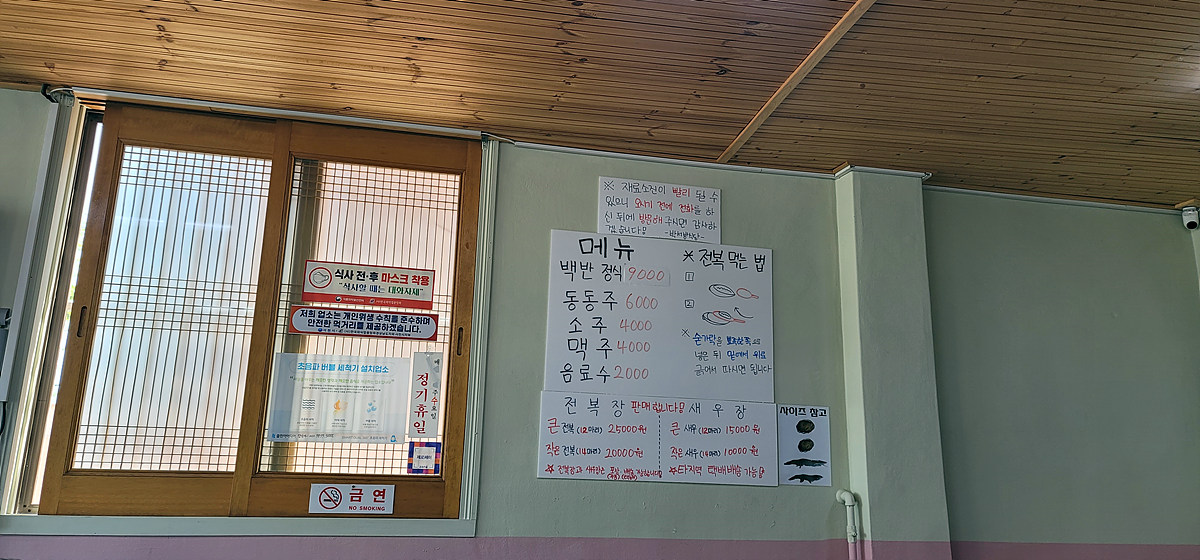 식사 전·후 마스크 착용
"식사할 때는 대화자제"
저희 업소는 개인위생 수칙을 준수하며
안전한 먹거리를 제공하겠습니다.
초음파 버블 세척기 설치업소
정기휴일
제로페이
금연
NO SMOKING
※ 재료소진이 빨리 될 수
있으니 오시기 전에 전화를 하
신 뒤에 방문해 주시면 감사하
겠습니다!
메뉴
백반 정식 9000
동동주 6000
소주 4000
맥주 4000
음료수 2000
※ 전복 먹는 법
1
2
※ 숟가락을
넣은 뒤 밑에서 위로
긁어서 떠시면 됩니다
전복장 판매합니다! 새우장
큰 전복 (12마리) 25000원
작은 전복 (14마리) 20000원
큰 새우 (12마리) 15000원
작은 새우 (14마리) 10000원
☆타지역 택배배송 가능!
사이즈 참고